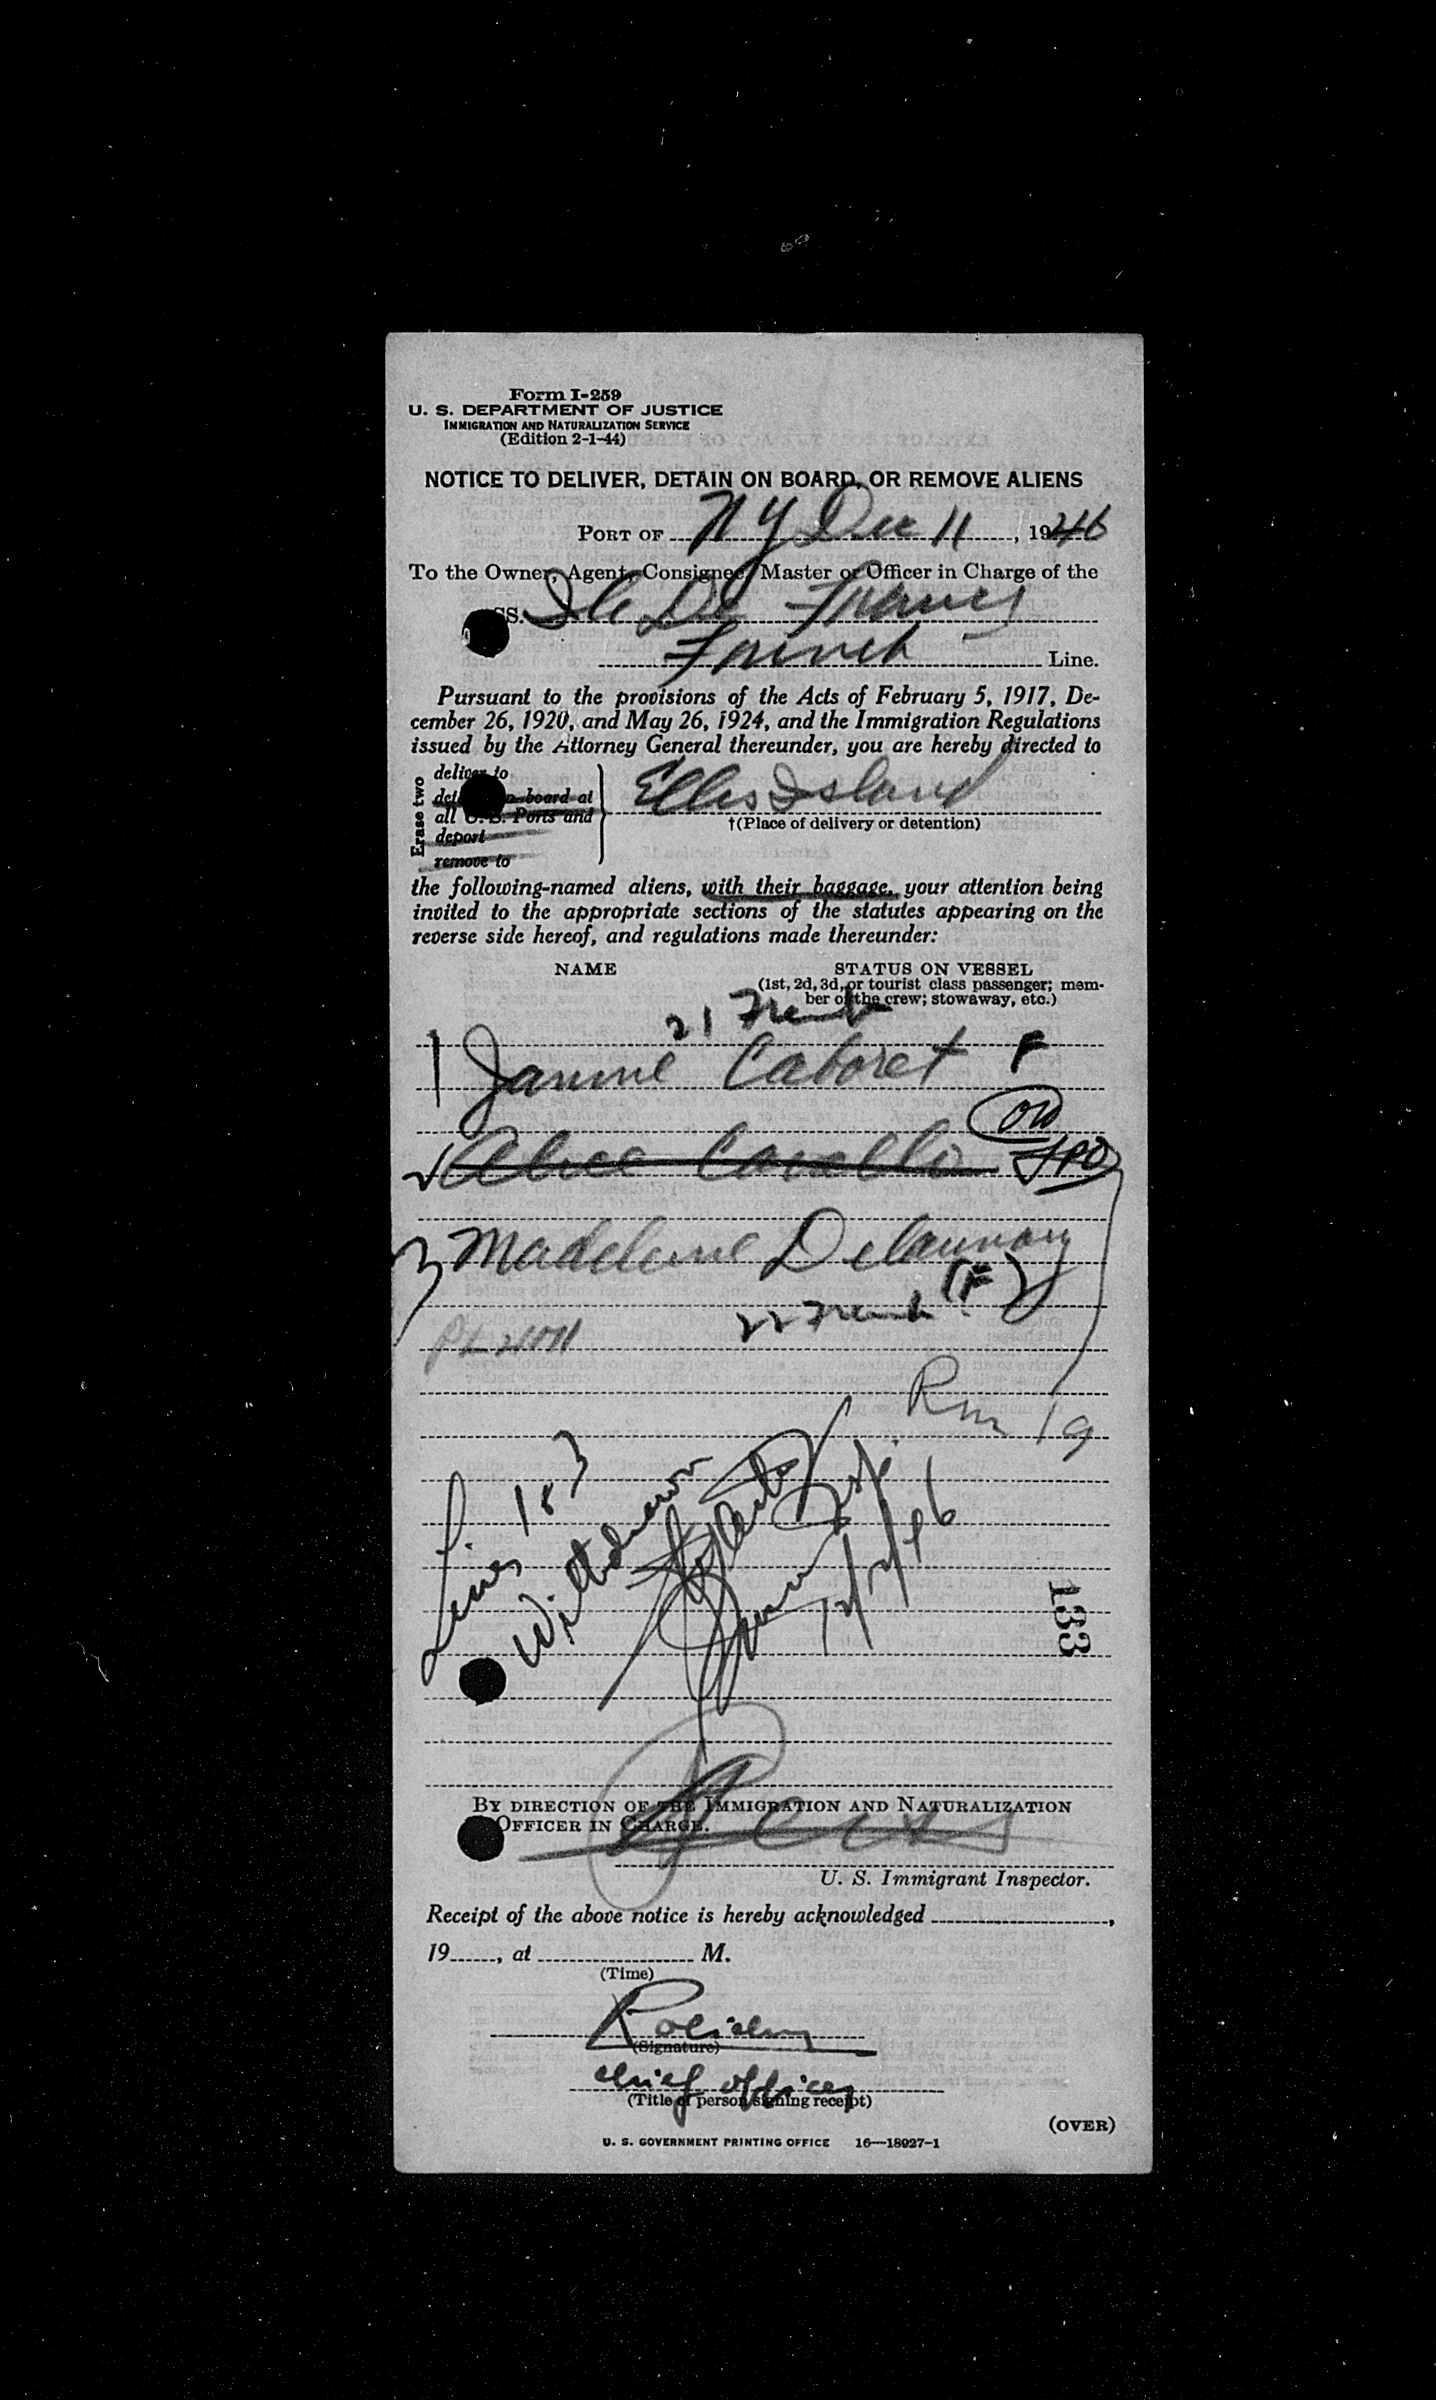 Form I-259
U. S. DEPARTMENT OF JUSTICE
IMMIGRATION AND NATURALIZATION SERVICE
(Edition 2-1-44)
NOTICE TO DELIVER, DETAIN ON BOARD, OR REMOVE ALIENS
PORT OF NY Dec 11, 1946
To the Owner, Agent, Consignee, Master or Officer in Charge of the
SS. Ile De France
French Line.
Pursuant to the provisions of the Acts of February 5, 1917, De-
cember 26, 1920, and May 26, 1924, and the Immigration Regulations
issued by the Attorney General thereunder, you are hereby directed to
Erase two
deliver to
board at
all U. S. Ports and
deport
remove to
Ellis Island
†(Place of delivery or detention)
the following-named aliens, with their baggage, your attention being
invited to the appropriate sections of the statutes appearing on the
reverse side hereof, and regulations made thereunder:
NAME STATUS ON VESSEL
(1st, 2d, 3d, or tourist class passenger; mem-
ber of the crew; stowaway, etc.)
21 French
1 Janine Caboret F
OW
2 Alice Cavallo
3 Madeleine Delaunay
22 French (F)
Rm 19
Lines 1 & 3
Withdrawn
12/12/46
133
BY DIRECTION OF THE IMMIGRATION AND NATURALIZATION
OFFICER IN CHARGE.
U. S. Immigrant Inspector.
Receipt of the above notice is hereby acknowledged ,
19 , at M.
(Time)
(Signature)
chief officer
(Title of person signing receipt)
(OVER)
U. S. GOVERNMENT PRINTING OFFICE 16—18927-1